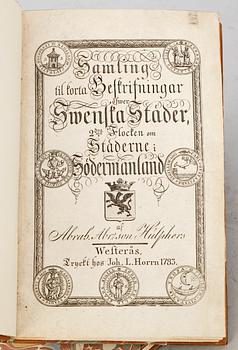 Samling
til korta Beskrifningar
öfwer
Swenska Städer,
2:dra Flocken om
Städerne i
Södermanland
af
Abrah. Abr:son Hülphers
Westerås.
Tryckt hos Joh. L. Horrn 1783.